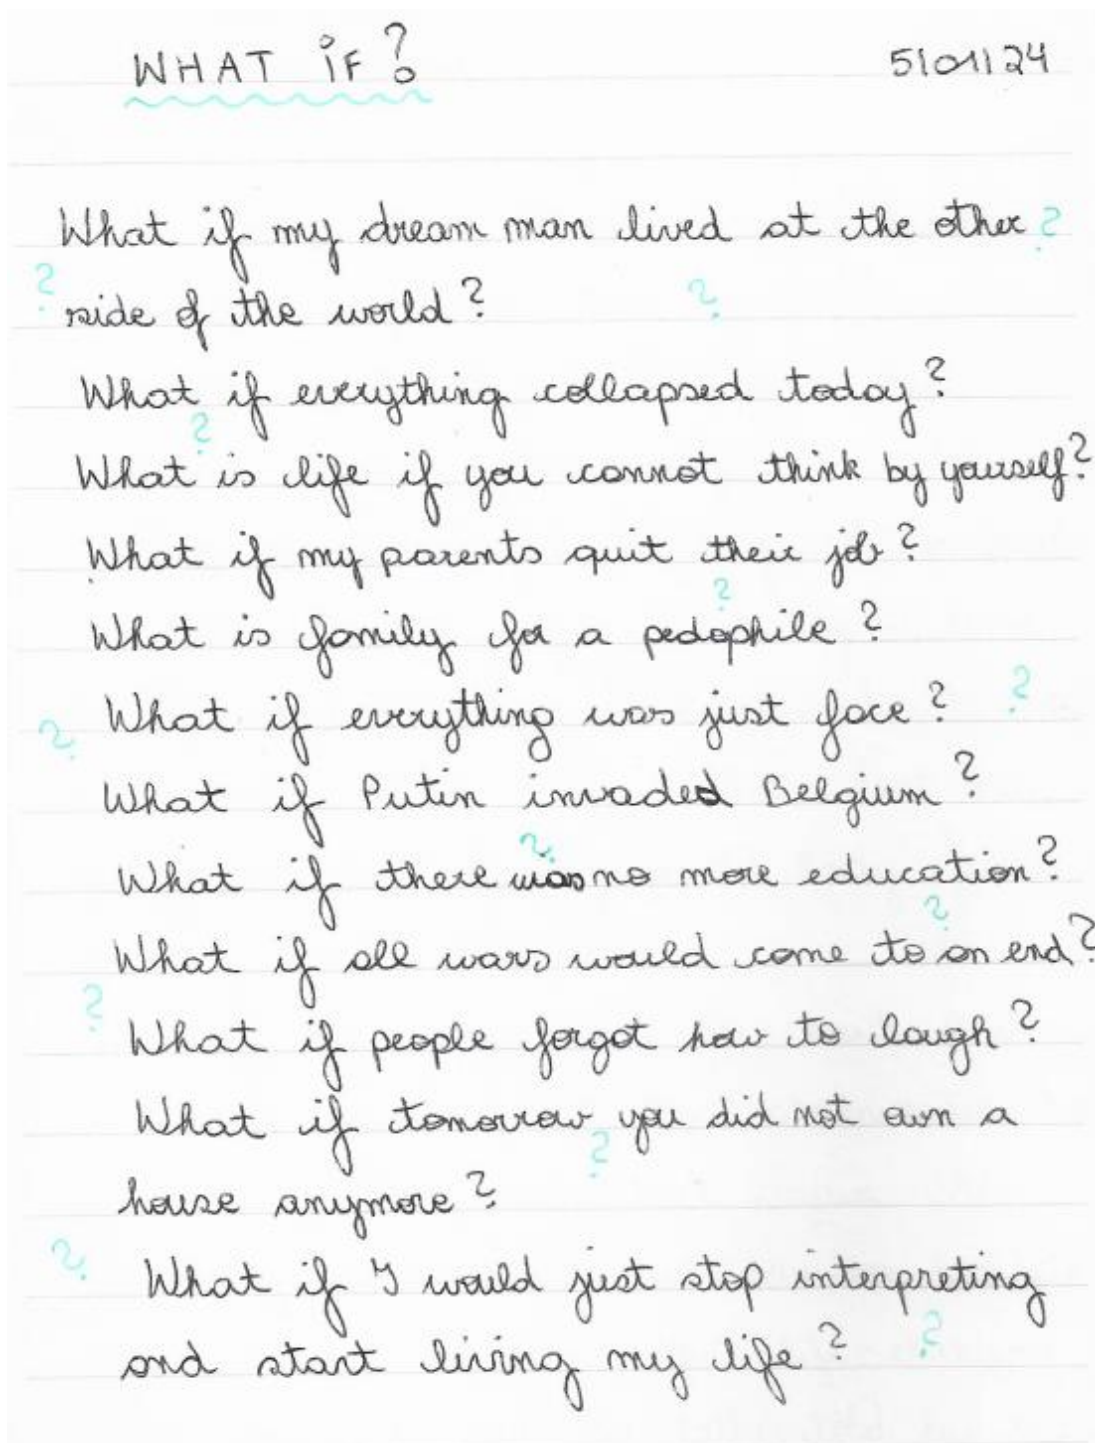 WHAT IF? 5/01/24
What if my dream man lived at the other
side of the world?
What if everything collapsed today?
What is life if you cannot think by yourself?
What if my parents quit their job?
What is family for a pedophile?
What if everything was just face?
What if Putin invaded Belgium?
What if there was no more education?
What if all wars would come to an end?
What if people forgot how to laugh?
What if tomorrow you did not own a
house anymore?
What if I would just stop interpreting
and start living my life?